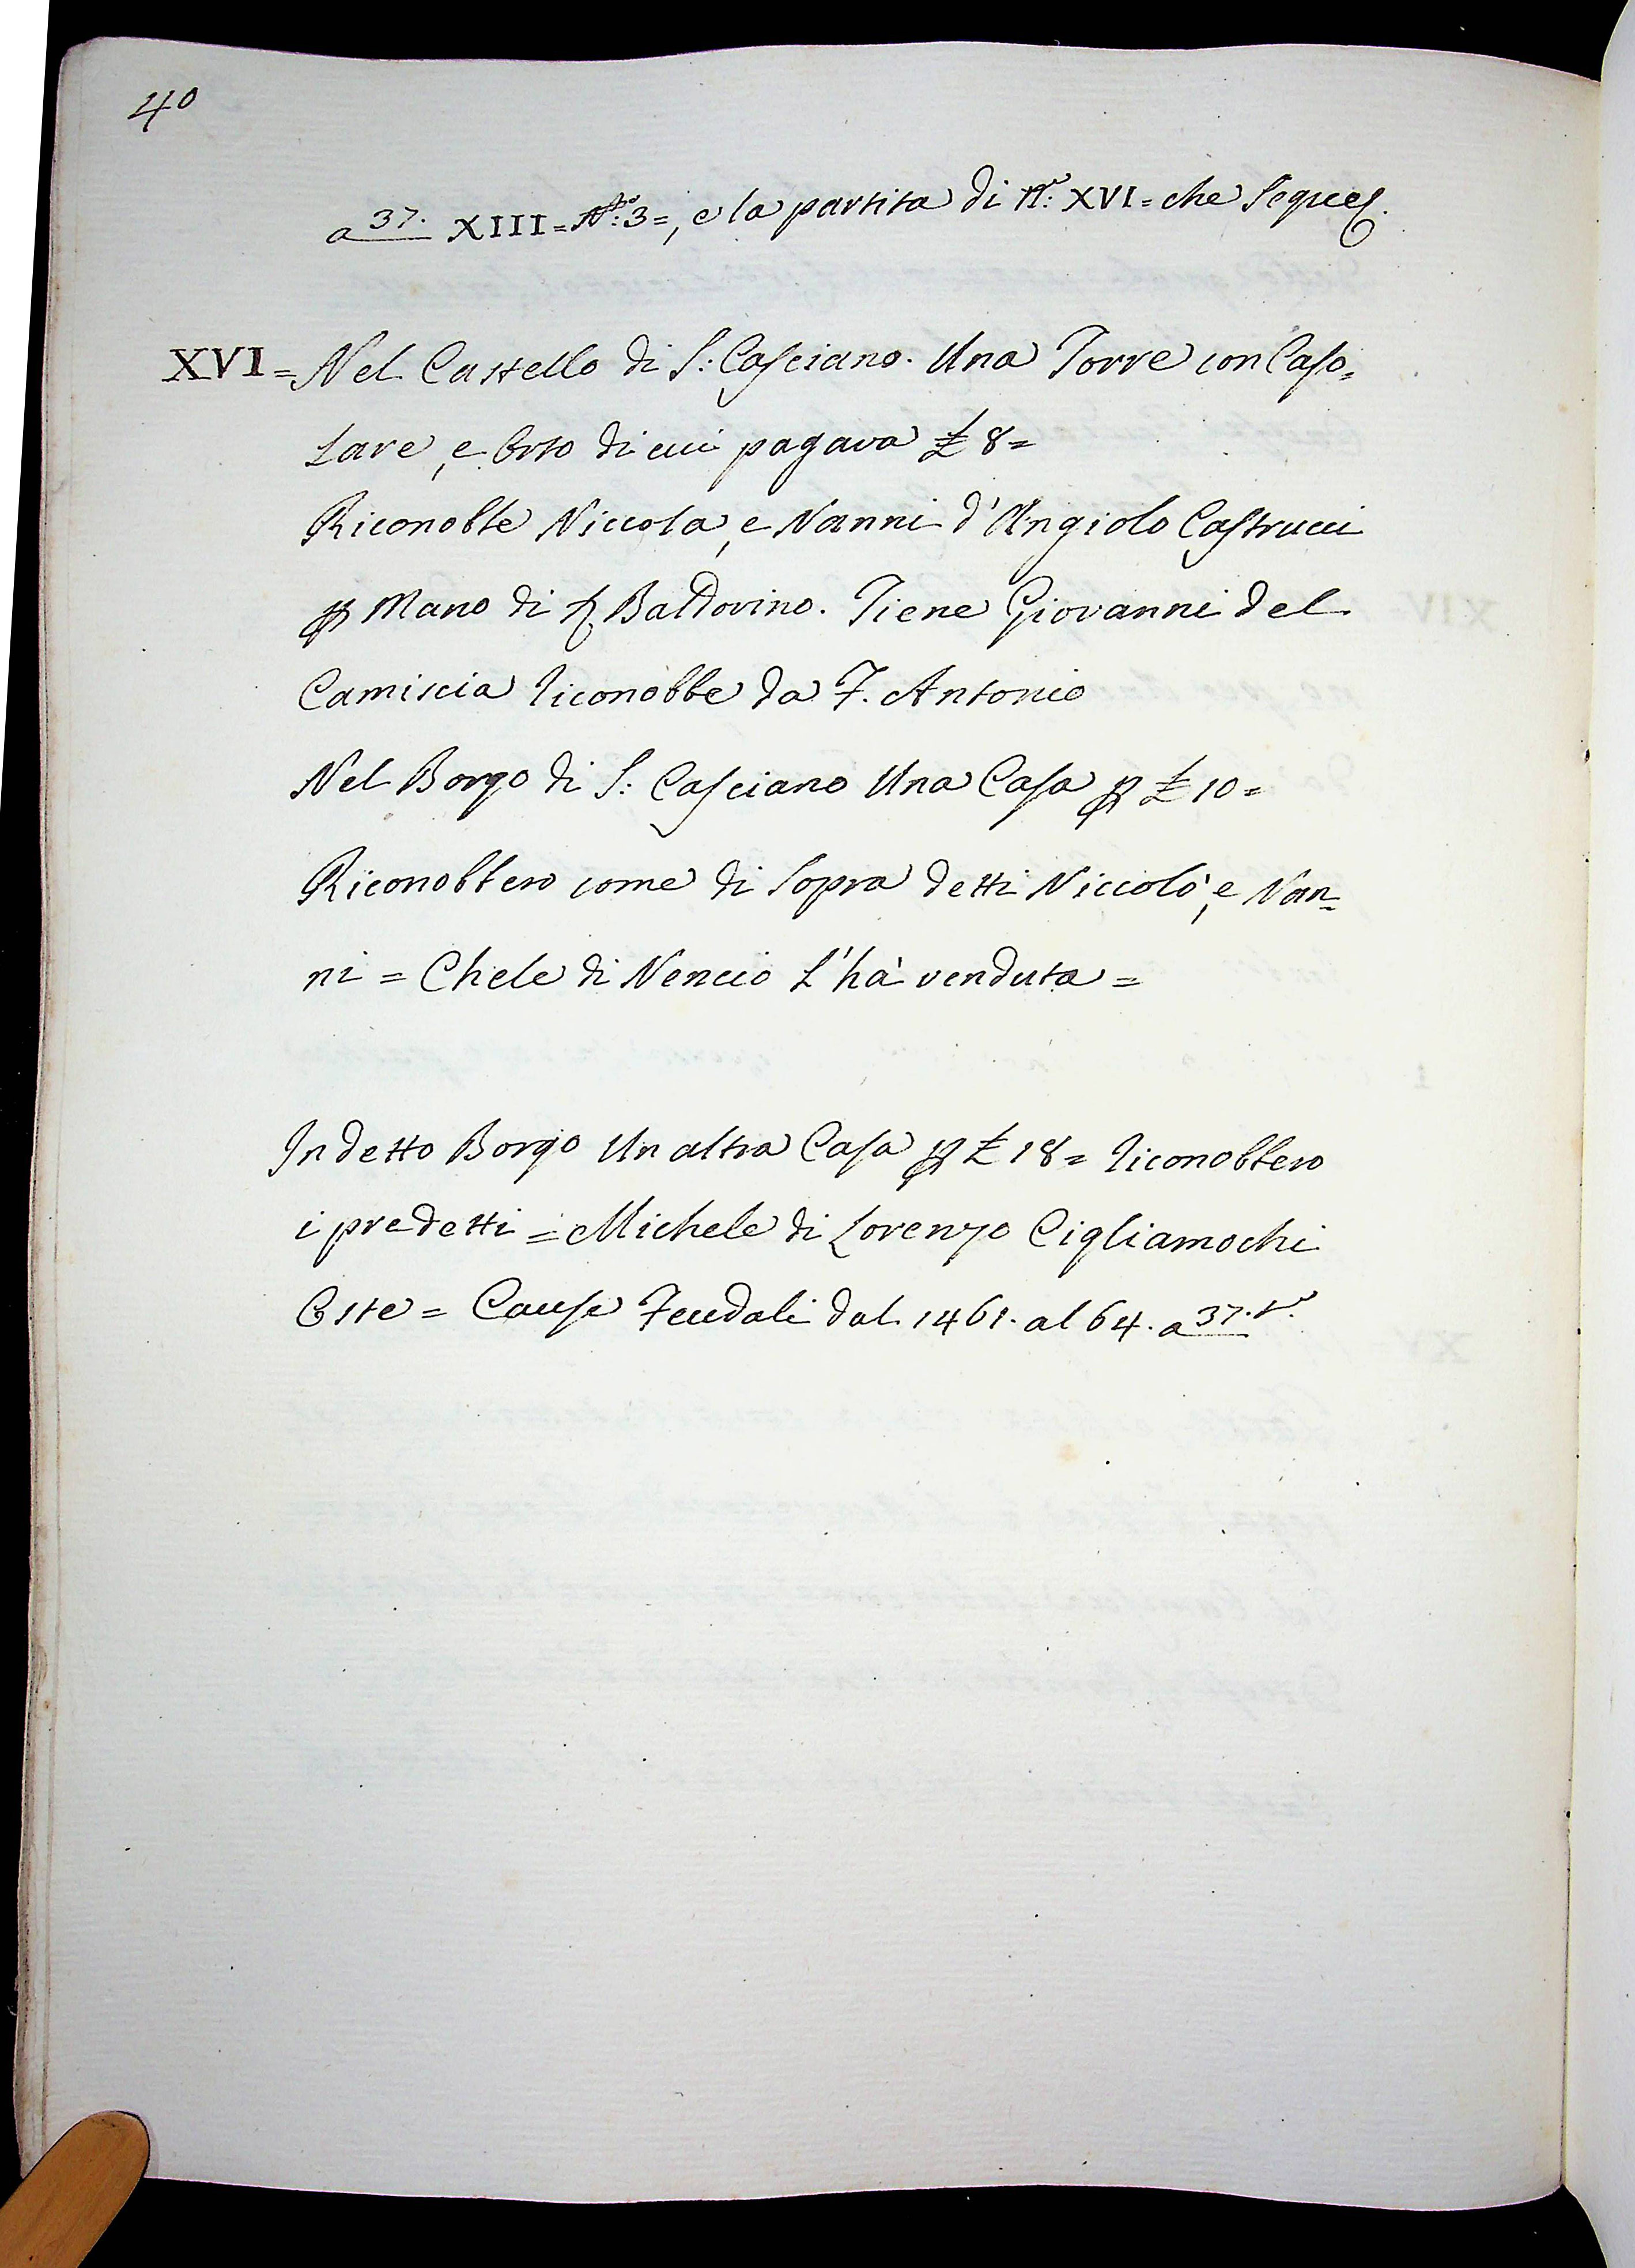 40
a 37. XIII = N.º 3 =, e la partita di N.º XVI = che Segue
XVI = Nel Castello di S: Casciano. Una Torre con Caso=
lare, e Orto di cui pagava £ 8 =
Riconobbe Niccola, e Nanni d'Angiolo Castrucci
Mano di Baldovino. Tiene Giovanni del
Camiscia riconobbe da F. Antonio
Nel Borgo di S: Casciano Una Casa £ 10 =
Riconobbero come di Sopra detti Niccolò, e Nan=
ni = Chele di Nencio l'hà venduta =
In detto Borgo Un altra Casa £ 18 = riconobbero
i predetti = Michele di Lorenzo Cigliamochi
Oste = Cause Feudali dal 1461. al 64. a 37. t.º